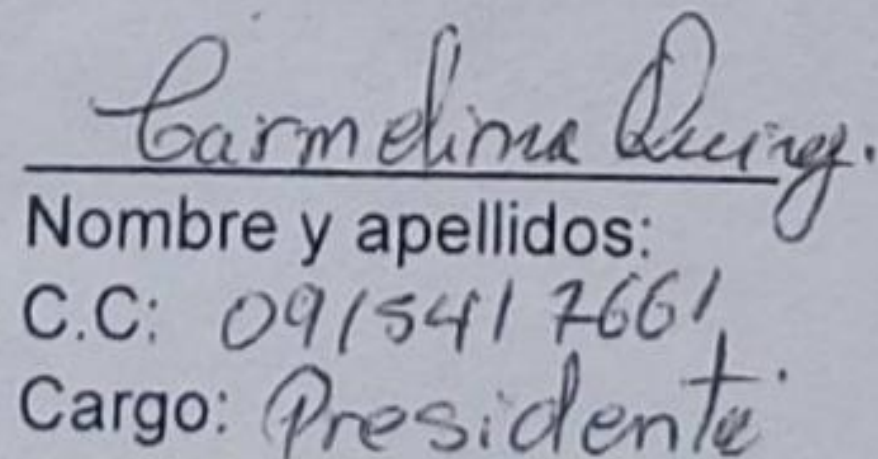 Carmelina Quiroz.
Nombre y apellidos:
C.C: 0915417661
Cargo: Presidenta